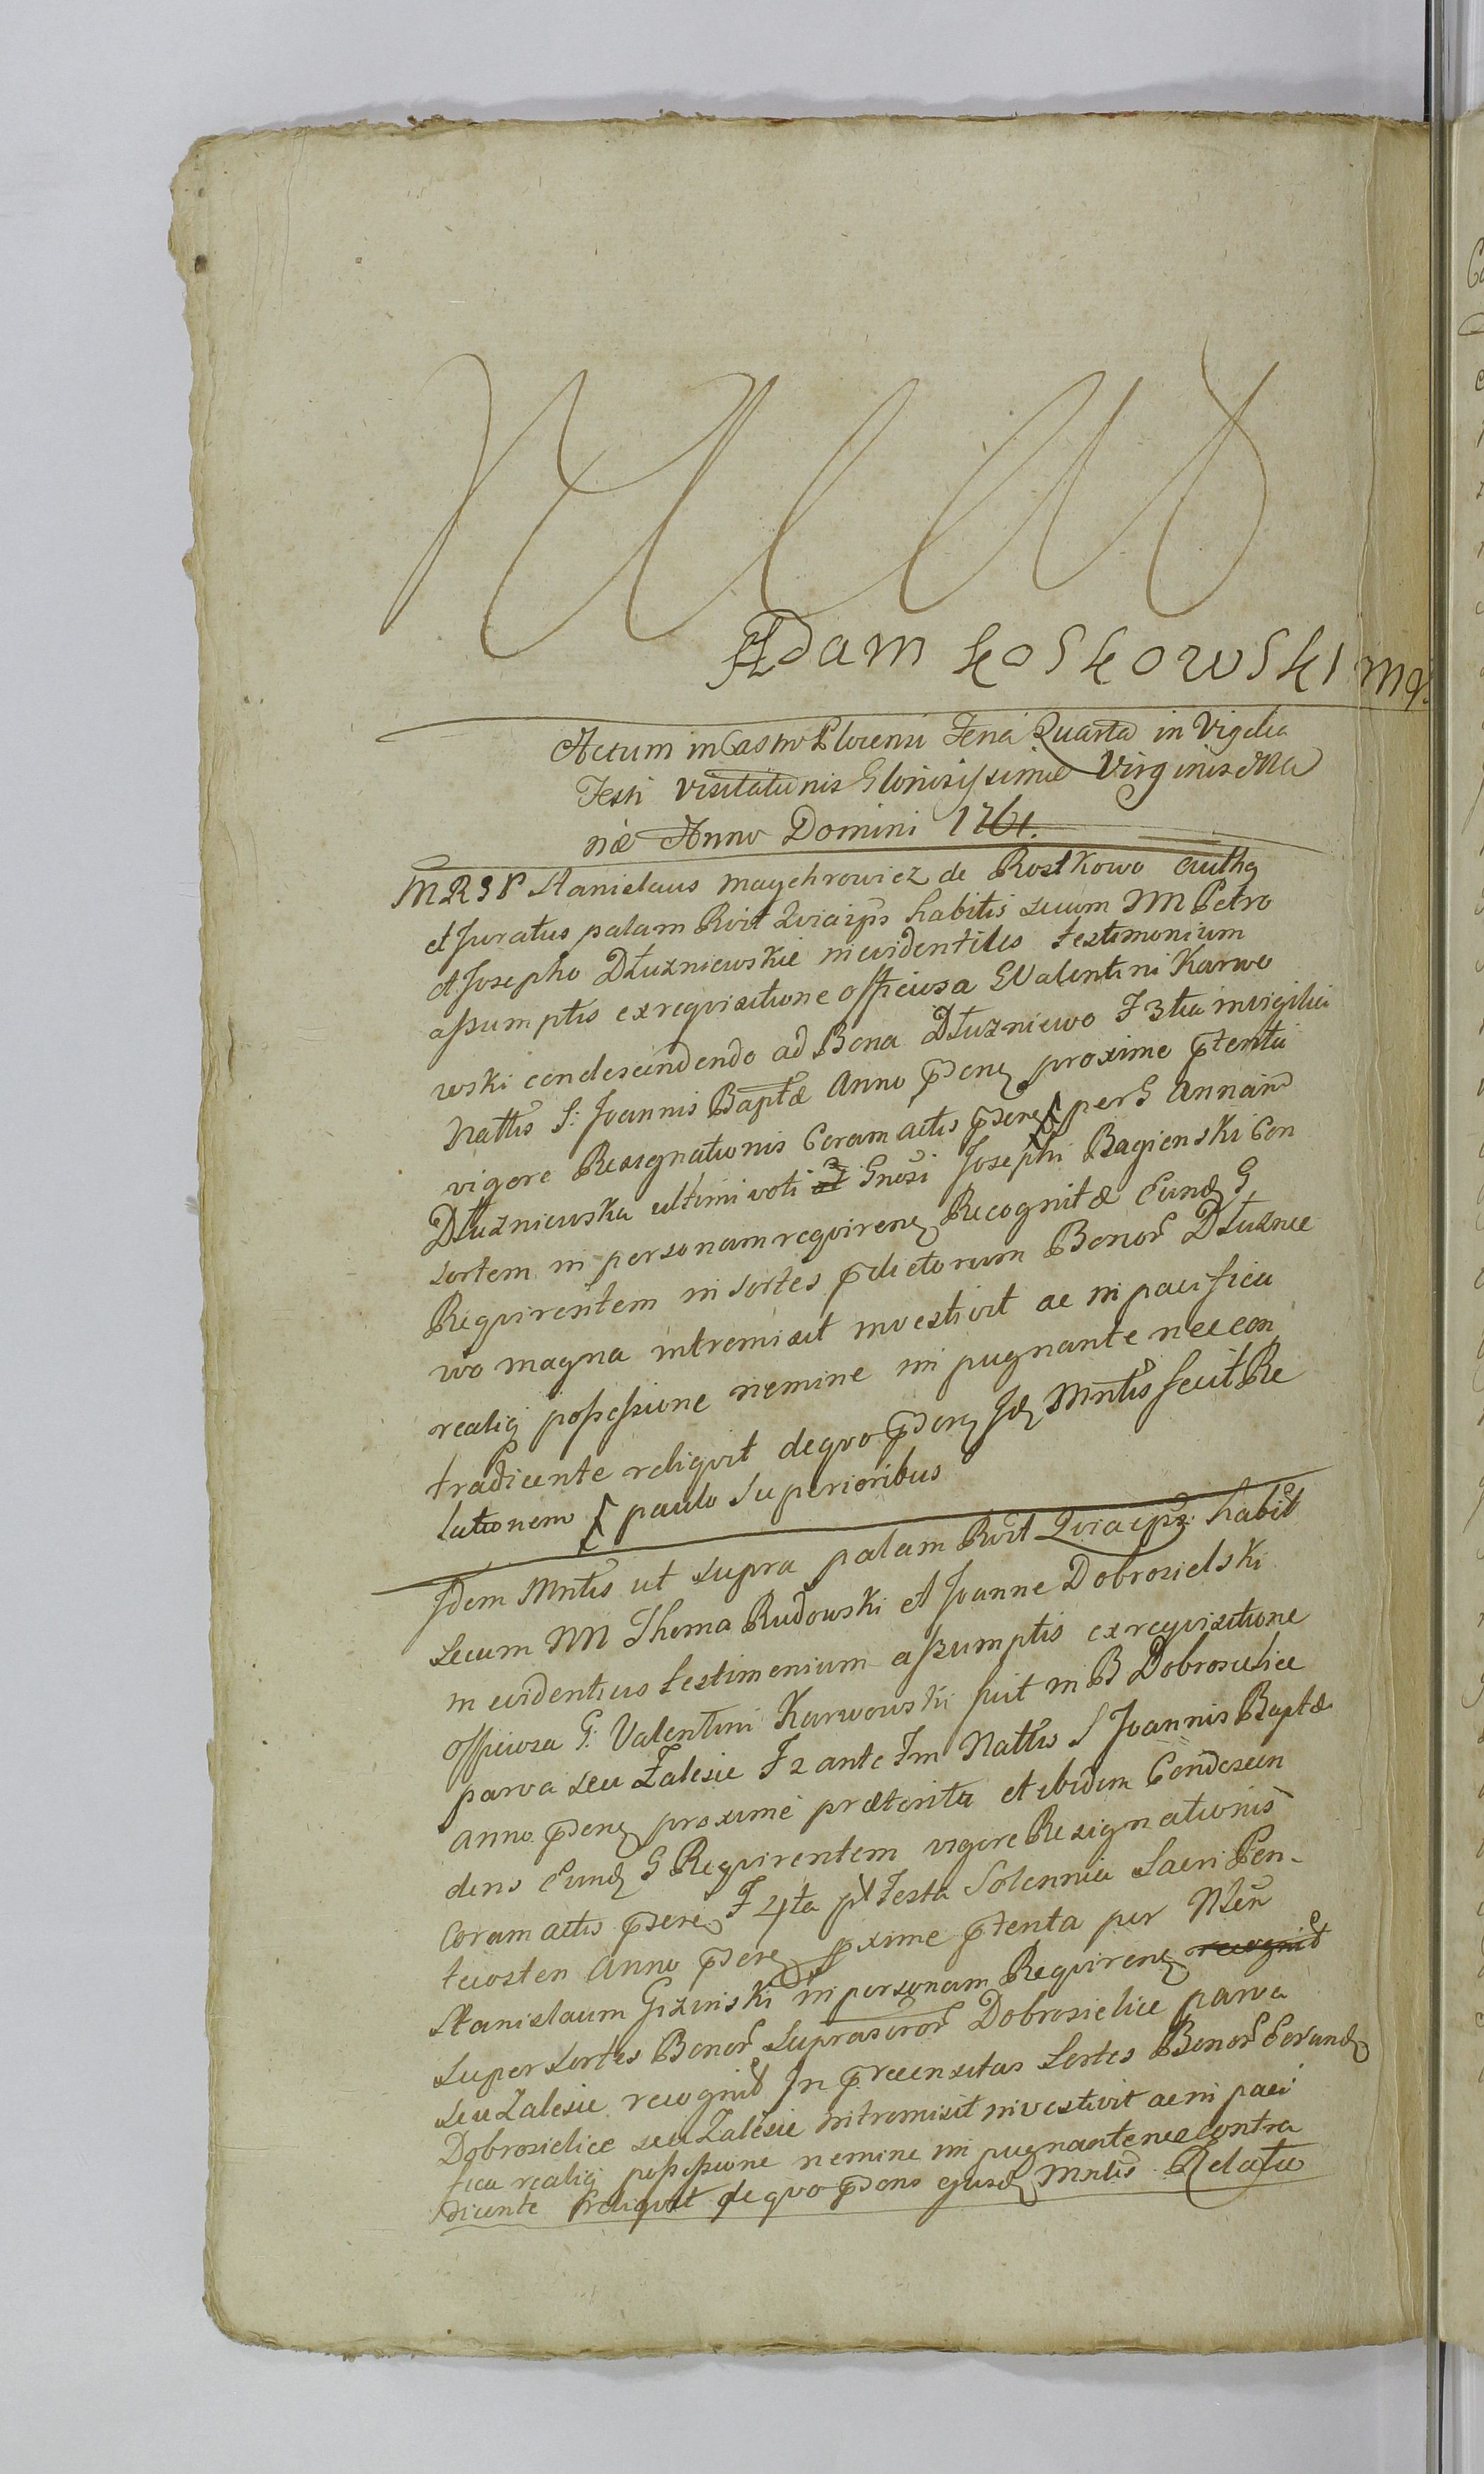 Adam Łoskowski mp
Actum in Castro Plocensi Feria Quarta in Vigilia
Festi Visitationis Gloriosissimæ Virginis Ma
riæ Anno Domini 1761.
MRSP Stanislaus Maychrowicz de Rostkowo Authq
et Juratus palam Rvit Qviaips habitis secum NN Petro
et Josepho Dłużniewskie in evidentiles testimonium
assumptis ex reqvisitione officiosa G Valentini Karwo
wski condescendendo ad Bona Dłużniewo F 3tia in vigilia
Nattis S: Joannis Baptæ Anno pden proxime pterita
vigore Resignationis Coram actis pden per G Annam
Dłużniewska ultimi voti Gnosi Josephi Bagienski Con
sortem in personam reqviren Recognitæ Eund G
Reqvirentem in sortes pdictorum Bonor Dłużnie
wo magna intromisit investivit ac in pacifica
realiq possessione nemine impugnante nec con
tradicente reliqvit de qvo pden Jd Mntis fecit Re
lationem paulo superioribus
Jdem Mntis ut supra palam Rvit Qviaips habit
secum NN Thoma Rudowski et Joanne Dobrosielski
in evidentius testimonium assumptis ex reqvisitione
officiosa G: Valentini Karwowski fuit in B Dobrosielice
parva seu Zalesie F 2 ante Fm Nattis S Joannis Baptæ
anno pden proxime præterita et ibidem Condescen
dens Eund G Reqvirentem vigore Resignationis
Coram actis pden F 4ta pt Festa Solennia Sacri Pen-
tecosten Anno pden pxime pterita per
Stanislaum Giziński in personam Reqviren recognit
super sortes Bonor suprascror Dobrosielice parva
seu Zalesie recognit Jn præcensitas sortes Bonor Eorund
Dobrosielice seu Zalesie intromisit investivit ac in paci
fica realiq possessione nemine impugnante nec contra
dicente reliqvit de qvo pdens ejusd Mntis Relatio